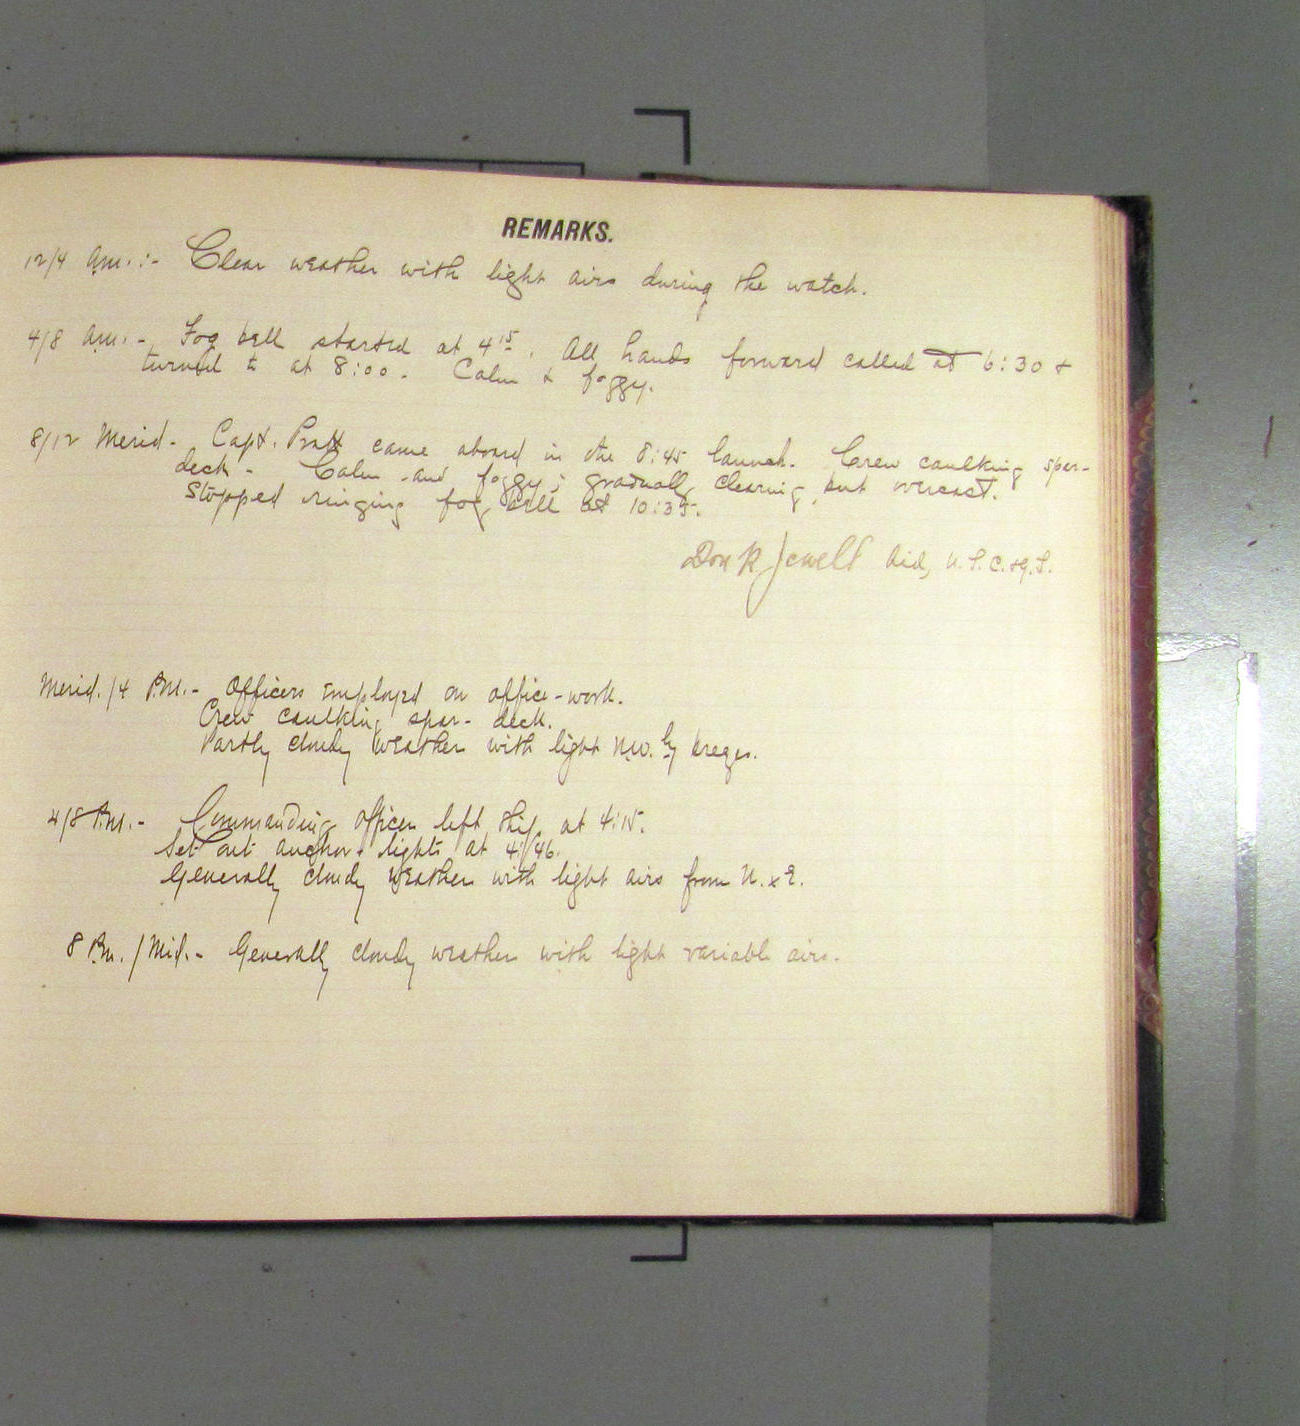 REMARKS.
12/4 am.:- Clear weather with light airs during the watch.
4/8 am.:- Fog bell started at 4 15. All hands forward called at 6:30 &
turned to at 8:00. Calm & foggy.
8/12 Merid- Capt. Pratt came aboard in the 8:45 launch. Crew caulking spar-
deck- Calm and foggy; gradually clearing, but overcast.
Stopped ringing fog bell at 10:35.
Don R Jewell Aid, U.S.C.&G.S.
Merid./4 P.M.- Officers employed on office-work.
Crew caulking spar-deck.
Partly cloudy weather with light NW. by breezes.
4/8 P.M.- Commanding officer left ship at 4:15.
Set out anchor lights at 4:46.
Generally cloudy weather with light airs from N. x E.
8 P.M./Mid.- Generally cloudy weather with light variable airs.